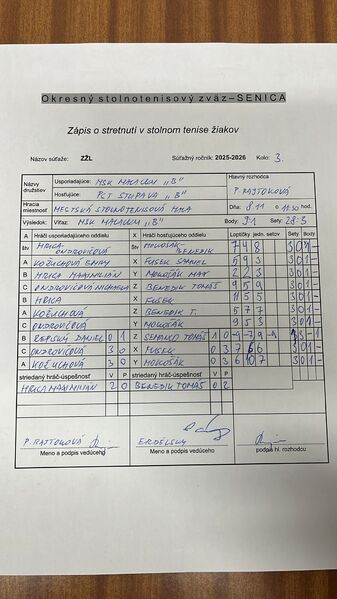 Okresný stolnotenisový zväz – SENICA
Zápis o stretnutí v stolnom tenise žiakov
Názov súťaže: ZŽL Súťažný ročník: 2025-2026 Kolo: 3.
Názvy družstiev Usporiadajúce: MSK MALACKY „B“ Hlavný rozhodca
Hosťujúce: PCT STUPAVA „B“ P. RAJTOKOVÁ
Hracia miestnosť MESTSKÁ STOLNOTENISOVÁ HALA Dňa: 8.11 o 11:30 hod.
Výsledok: Víťaz: MSK MALACKY „B“ Body: 9:1 Sety: 28:3
A Hráči usporiadajúceho oddielu X Hráči hosťujúceho oddielu Loptičky jedn. setov Sety Body
štv HRICA- ONDROVIČOVÁ štv MOKOŠÁK- BENEDIK 7 4 8 3 0 1 -
A KOŽUCHOVÁ EMMY X FUSEK SAMUEL 5 9 3 3 0 1 -
B HRICA MAXIMILIÁN Y MOKOŠÁK MAX 2 2 3 3 0 1 -
C ONDROVIČOVÁ MICHAELA Z BENEDIK TOMÁŠ 9 5 9 3 0 1 -
B HRICA X FUSEK 11 5 5 3 0 1 -
A KOŽUCHOVÁ Z BENEDIK T. 5 7 7 3 0 1 -
C ONDROVIČOVÁ Y MOKOŠÁK 9 5 3 3 0 1 -
B ŘEPISKÝ DANIEL 0 1 Z SEMANKO TOMÁŠ 1 0
C ONDROVIČOVÁ 3 0 X FUSEK 0 3 7 6 6 3 0 1 -
A KOŽUCHOVÁ 3 0 Y MOKOŠÁK 0 3 6 10 7 3 0 1 -
striedaný hráč-úspešnosť V P striedaný hráč-úspešnosť V P
HRICA MAXIMILIÁN 2 0 BENEDIK TOMÁŠ 0 2
P. RAJTOKOVÁ ERDÉLSKY
Meno a podpis vedúceho Meno a podpis vedúceho podpis hl. rozhodcu